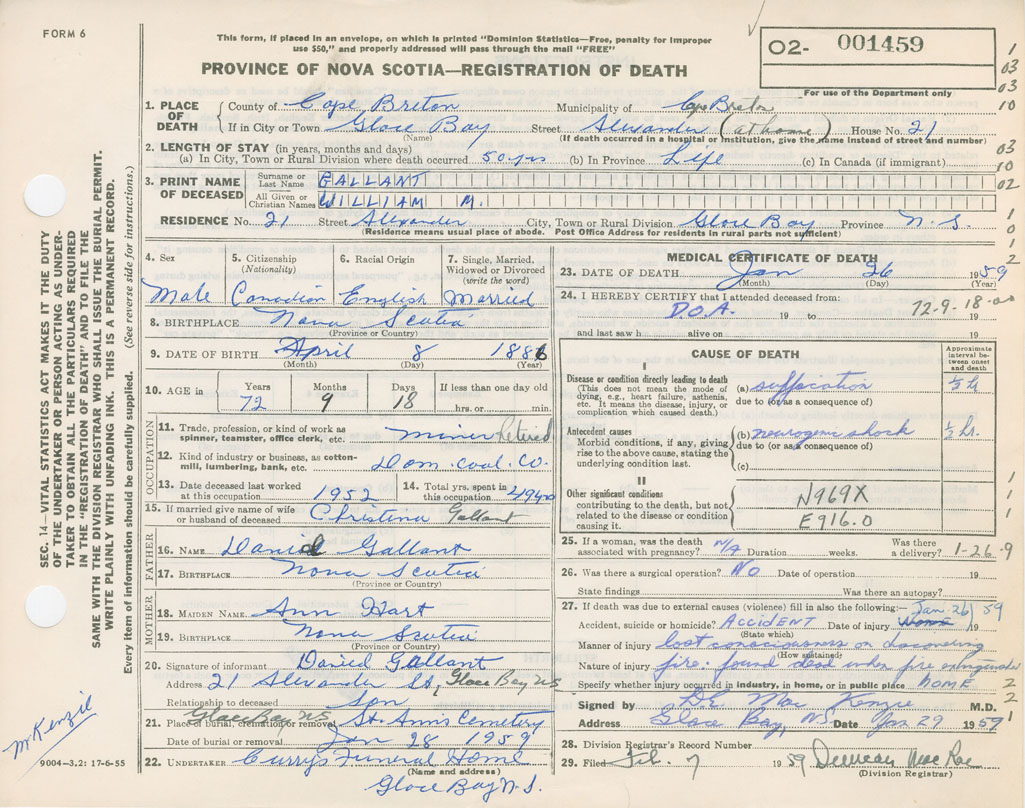 FORM 6
This form, if placed in an envelope, on which is printed "Dominion Statistics—Free, penalty for improper
use $50," and properly addressed will pass through the mail "FREE"
PROVINCE OF NOVA SCOTIA—REGISTRATION OF DEATH
O2- 001459
For use of the Department only
1. PLACE OF DEATH County of Cape Breton Municipality of Cape Breton
If in City or Town Glace Bay Street Alexander (at home) House No. 21
(Name) (If death occurred in a hospital or institution, give the name instead of street and number)
2. LENGTH OF STAY (in years, months and days)
(a) In City, Town or Rural Division where death occurred 50 yrs (b) In Province Life (c) In Canada (if immigrant)
3. PRINT NAME OF DECEASED Surname or Last Name GALLANT
All Given or Christian Names WILLIAM M.
RESIDENCE No. 21 Street Alexander City, Town or Rural Division Glace Bay Province N.S.
(Residence means usual place of abode. Post Office Address for residents in rural parts not sufficient)
4. Sex 5. Citizenship (Nationality) 6. Racial Origin 7. Single, Married, Widowed or Divorced (write the word)
Male Canadian English Married
8. BIRTHPLACE Nova Scotia
(Province or Country)
9. DATE OF BIRTH April 8 1886
(Month) (Day) (Year)
10. AGE in Years Months Days If less than one day old
72 9 18 hrs. or min.
OCCUPATION
11. Trade, profession, or kind of work as spinner, teamster, office clerk, etc. miner Retired
12. Kind of industry or business, as cotton-mill, lumbering, bank, etc. Dom. Coal. Co.
13. Date deceased last worked at this occupation 1952 14. Total yrs. spent in this occupation 49 yrs
15. If married give name of wife or husband of deceased Christina Gallant
FATHER
16. NAME Daniel Gallant
17. BIRTHPLACE Nova Scotia
(Province or Country)
MOTHER
18. MAIDEN NAME Ann Hart
19. BIRTHPLACE Nova Scotia
(Province or Country)
20. Signature of informant Daniel Gallant
Address 21 Alexander St, Glace Bay NS
Relationship to deceased Son
21. Place of burial, cremation or removal Glace Bay, NS St. Anns Cemetery
Date of burial or removal Jan 28 1959
22. UNDERTAKER Curry's Funeral Home
(Name and address)
Glace Bay N.S.
MEDICAL CERTIFICATE OF DEATH
23. DATE OF DEATH Jan 26 1959
(Month) (Day) (Year)
24. I HEREBY CERTIFY that I attended deceased from: 72-9-18-00
D.O.A. 19 to 19
and last saw h alive on 19
CAUSE OF DEATH
Approximate interval between onset and death
I
Disease or condition directly leading to death (a) suffocation ½ h
(This does not mean the mode of dying, e.g., heart failure, asthenia, etc. It means the disease, injury, or complication which caused death.)
due to (or as a consequence of)
Antecedent causes (b) neurogenic shock ½ hr.
Morbid conditions, if any, giving rise to the above cause, stating the underlying condition last.
due to (or as a consequence of)
(c)
II
Other significant conditions contributing to the death, but not related to the disease or condition causing it.
N969X
E916.0
25. If a woman, was the death associated with pregnancy? N/A Duration weeks. Was there a delivery? 1-26-9
26. Was there a surgical operation? No Date of operation 19
State findings Was there an autopsy?
27. If death was due to external causes (violence) fill in also the following:— Jan. 26/59
Accident, suicide or homicide? ACCIDENT Date of injury 19
(State which)
Manner of injury lost consciousness on discovering
(How sustained)
Nature of injury fire: found dead when fire extinguished
Specify whether injury occurred in industry, in home, or in public place HOME
Signed by Mac Kenzie M.D.
Address Glace Bay, NS Date Jan 29 1959
28. Division Registrar's Record Number
29. Filed Feb. 7 1959 Duncan MacRae
(Division Registrar)
SEC. 14—VITAL STATISTICS ACT MAKES IT THE DUTY
OF THE UNDERTAKER OR PERSON ACTING AS UNDER-
TAKER TO OBTAIN ALL THE PARTICULARS REQUIRED
IN THE "REGISTRATION OF DEATH" AND TO FILE THE
SAME WITH THE DIVISION REGISTRAR WHO SHALL ISSUE THE BURIAL PERMIT.
WRITE PLAINLY WITH UNFADING INK. THIS IS A PERMANENT RECORD.
Every item of information should be carefully supplied. (See reverse side for instructions.)
McKenzie
9004-3.2: 17-6-55
1
03
03
10
03
10
02
1
0
1
2
1
1
1
2
2
1